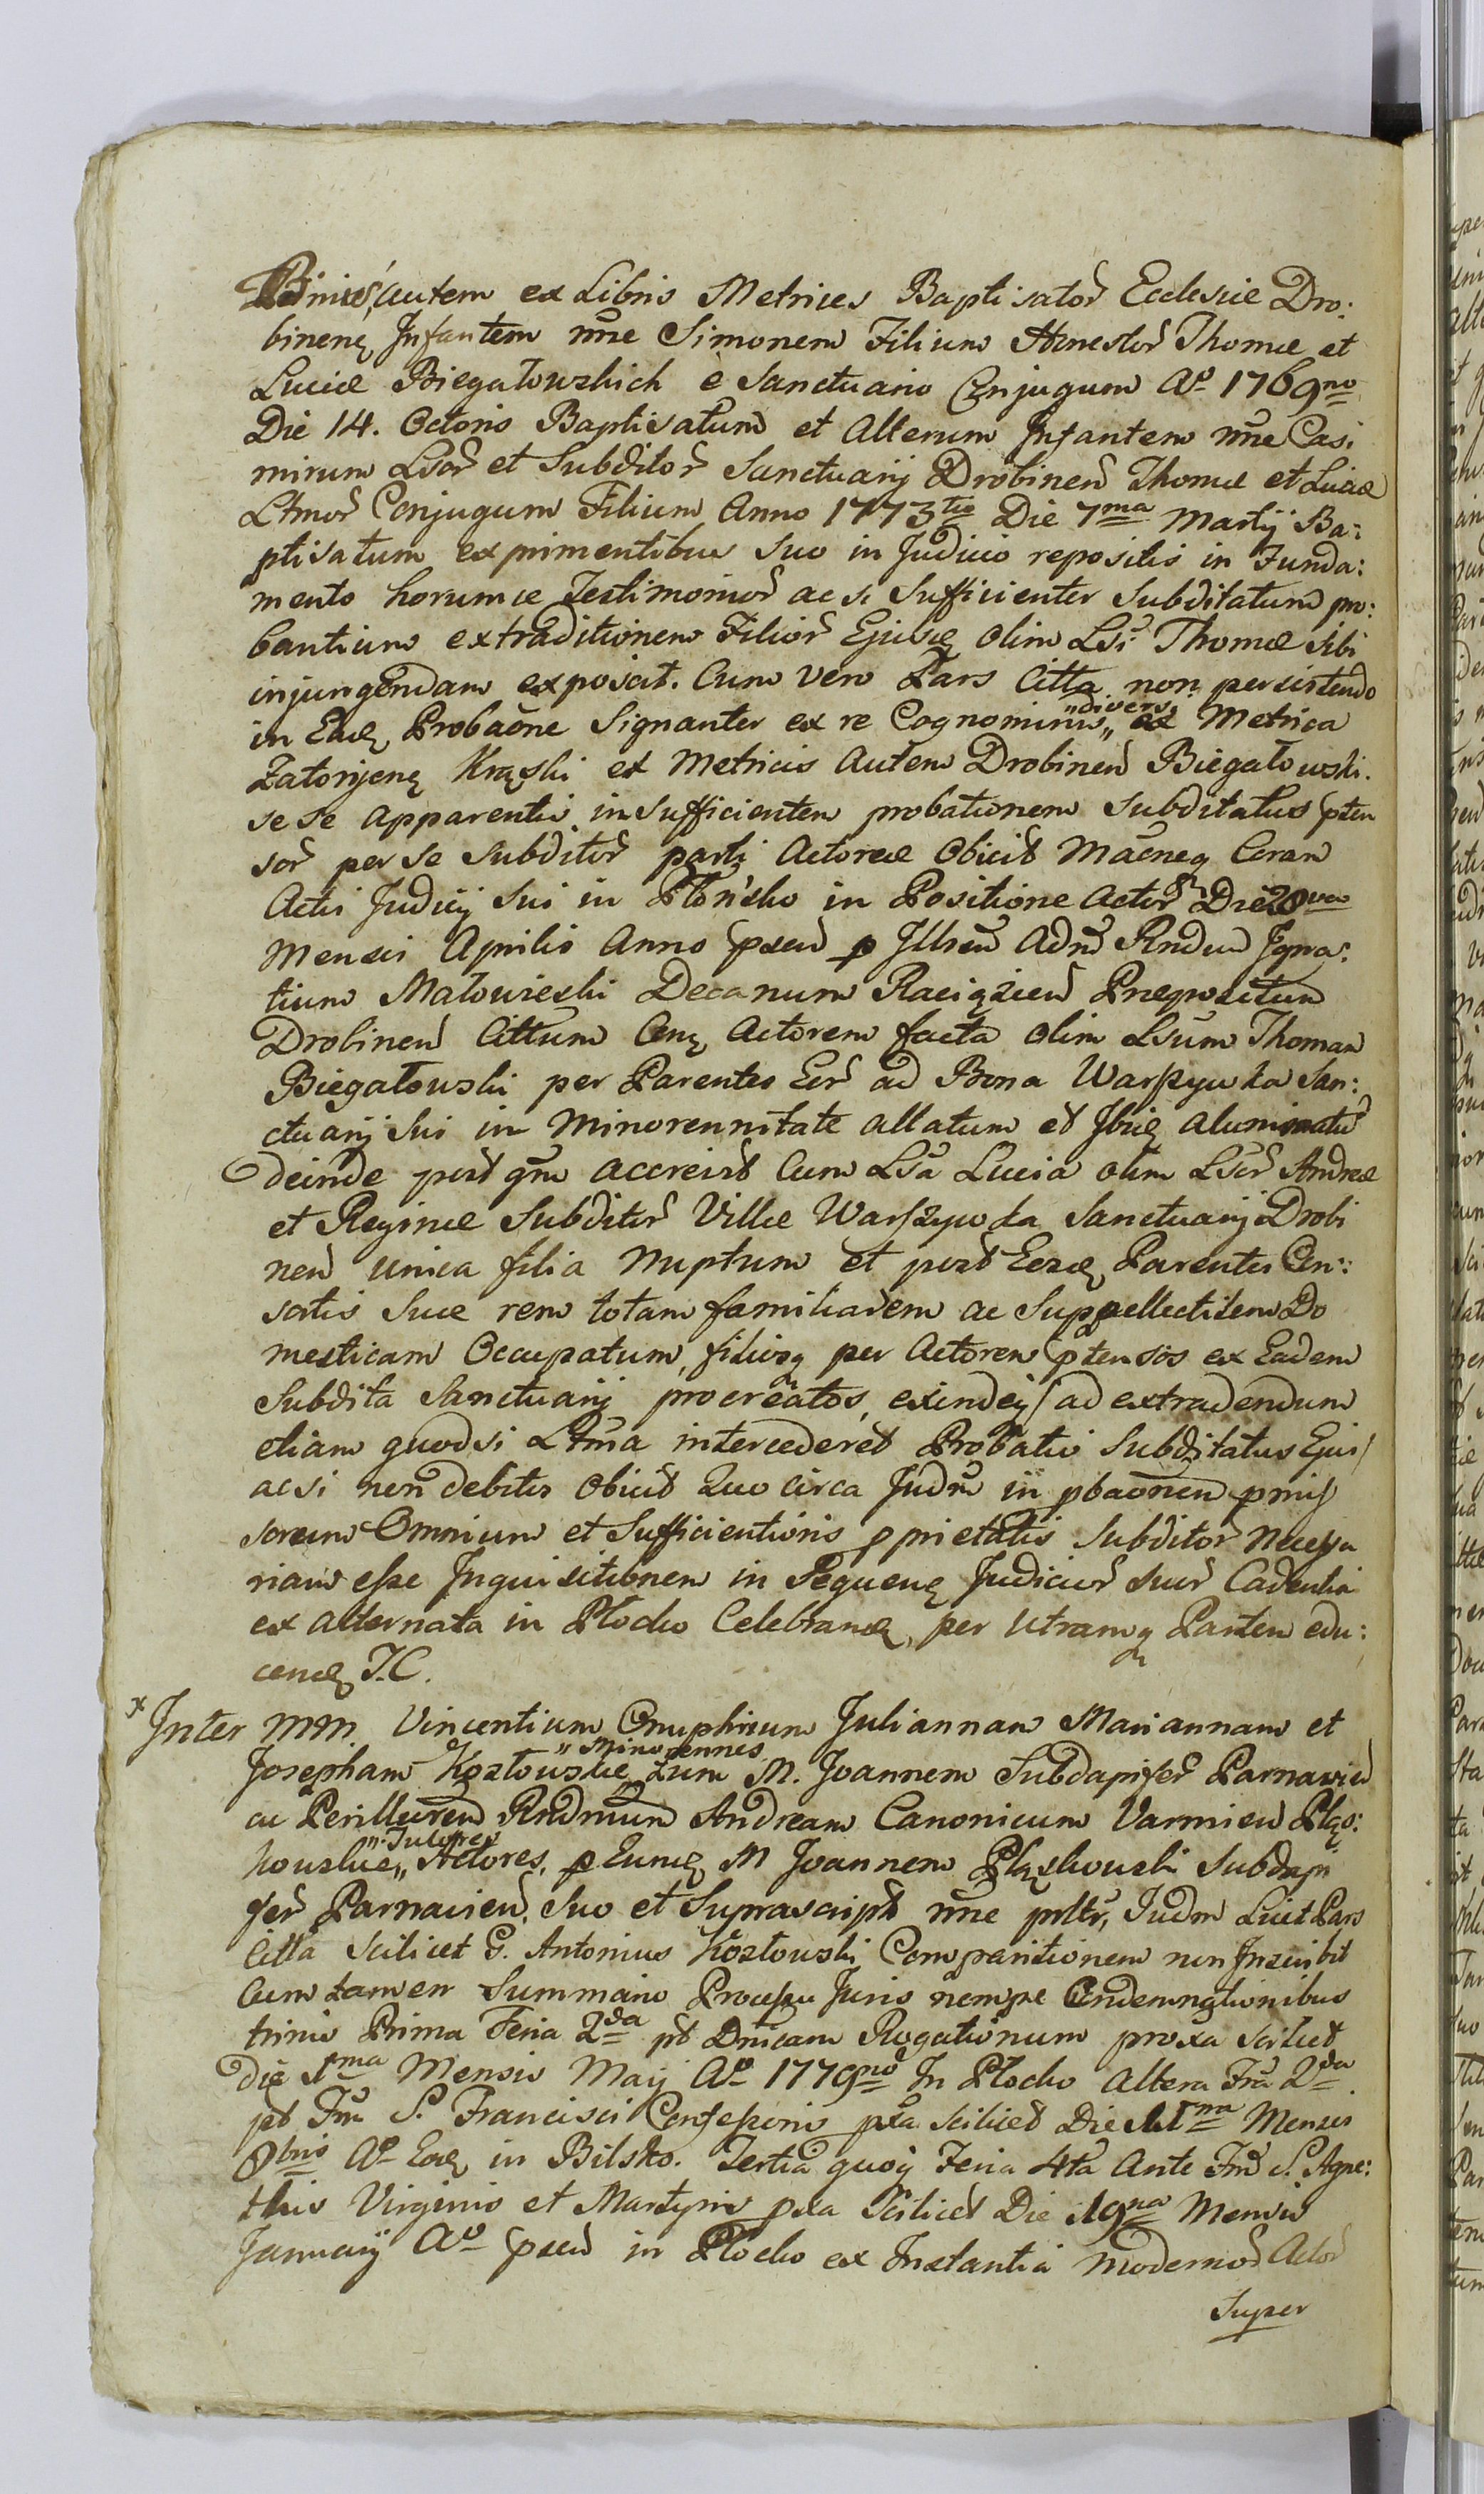 Binis autem ex Libris Metrices Baptisator Ecclesiæ Dro:
binenę Infantem nne Simonem Filium Honestor Thomæ et
Luciæ Biegałowskich è Sanctuario Conjugum Aº 1769no
Die 14. Octoris Baptisatum et Alterum Infantem nne Casi
mirum Lsor et Subditor Sanctuarij Drobinen Thomæ et Luciæ
Ltmor Conjugum Filium Anno 1773tio Die 7ma Martij Ba:
ptisatum exprimentibus suo in Judicio repositis in Funda:
mento horumce Testimonior ac si sufficienter Subditatum pro:
bantium extraditionem Filior Ejusdę olim Lsi Thomæ sibi
injungendam exposcit. Cum vero Pars Citta non persistendo
in Eadę Probaone Signanter ex re Cognominis „divers„ ex Metrica
Zatorijenę Krąski ex Metricis Autem Drobinen Biegałowski.
sese apparentis insufficientem probationem Subditatus pten
sor per se Subditor parti Actoreæ Obicit Macneq Coram
Actis Judicij sui in Płońsko in Positione Actor Die 20ma
Mensis Aprilis Anno psen p Illsem Adm Rndum Igna:
tium Małowieski Decanum Raciązien Præpositum
Drobinen Cittum Cenę Actorem facta olim Lsum Thomam
Biegałowski per Parentes Eor ad Bona Warszywka San:
ctuarij sui in Minorennitate allatum et Ibidę alumnatum
deinde post qm accrevit Cum Lsa Lucia olim Lsor Andreæ
et Reginæ Subditor Villæ Warszywka Sanctuarij Drobi
nen unica filia Nuptum et post Eosdę Parentes Con:
sortis Suæ rem totam familiarem ac Suppellectilem Do
mesticam Occupatum, filiosq per Actorem ptensos ex Eadem
Subdita Sanctuarij procreatos, exindeq ad extradendum
etiam quodsi Ltma intercederet Probatio Subditatus Ejus
acsi non debitos Obicit Quo circa Judm in pbaonem pmis
sorum Omnium et Sufficientioris pprietatis Subditor Necessa
riam esse Inquisitionem in Sequenę Judicior suor Cadentia
ex alternata in Płocko Celebrandę, per Utramq Partem edu:
cendę I.C.
x Inter MM. Vincentium Onuphrium Juliannam Mariannam et
Josepham Kozłowskie „Minorennes„ tum M. Joannem Subdapifer Parnavien
ac Perillurem Rndmum Andream Canonicum Varmien Pląs:
kowskie „Tutores„ Actores, p Eundę M Joannem Pląskowski Subdapi
fer Parnavien, Suo et Suprascript nne pltr, Judm Licet Pars
Citta scilicet G. Antonius Kozłowski Comparitionem non Inscribit
Cum tamen Summario Processu Juris nempe Condemnationibus
trinis Prima Feria 2da pt Dnicam Rogationum proxa scilicet
die 1ma Mensis Maij Aº 1779no In Płocko Altera Fria 2da
pt Fm S. Francisci Confessoris pxa scilicet Die 11ma Menses
8bris Aº Eodę in Bilsko. Tertia quoq Feria 4ta Ante Fm S. Agne:
this Virginis et Martyris pxa Scilicet Die 19na Mensis
Januarij Aº psen in Płocko ex Instantia Modernor Actor
Super